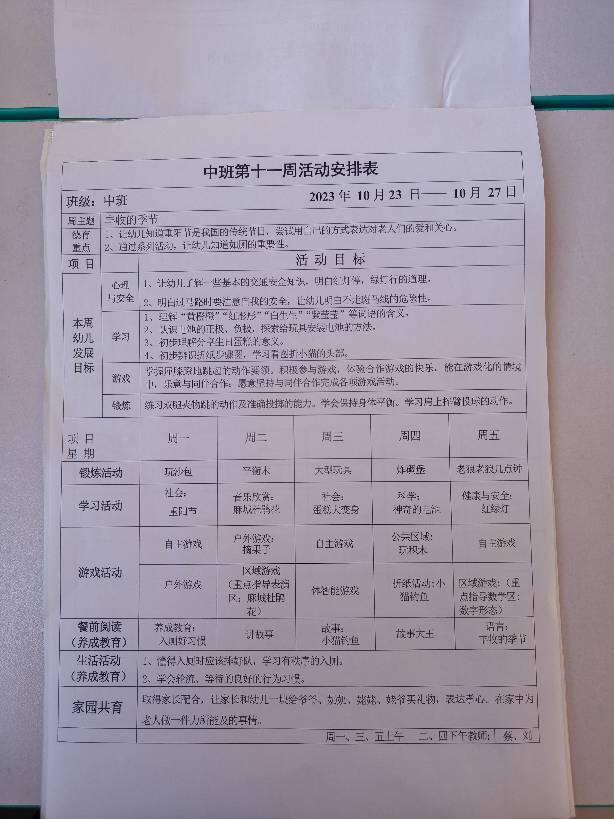 中班第十一周活动安排表
班级：中班 2023 年 10 月 23 日—— 10 月 27 日
周主题 丰收的季节
教育重点 1、让幼儿知道重阳节是我国的传统节日，尝试用自己的方式表达对老人们的爱和关心。
2、通过系列活动，让幼儿知道如厕的重要性。
项 目 活 动 目 标
本周幼儿发展目标
心理与安全 1、让幼儿了解一些基本的交通安全知识，明白红灯停，绿灯行的道理。
2、明白过马路时要注意自我的安全，让幼儿明白不走斑马线的危险性。
学习 1、理解“黄橙橙”“红彤彤”“白生生”“紫莹莹”等词语的含义。
2、认识电池的正极、负极，探索给玩具安装电池的方法。
3、初步理解分享生日蛋糕的意义。
4、初步辨识折纸步骤图，学习看图折小猫的头部。
游戏 掌握屈膝原地跳起的动作要领。积极参与游戏，体验合作游戏的快乐。能在游戏化的情境
中，乐意与同伴合作；愿意坚持与同伴合作完成各项游戏活动。
锻炼 练习双腿夹物跳的动作及准确投掷的能力。学会保持身体平衡。学习肩上挥臂投球的动作。
项 目
星 期 周一 周二 周三 周四 周五
锻炼活动 玩沙包 平衡木 大型玩具 炸碉堡 老狼老狼几点钟
学习活动 社会：重阳节 音乐欣赏：麻城杜鹃花 社会：蛋糕大变身 科学：神奇的电池 健康与安全：红绿灯
游戏活动 自主游戏 户外游戏：摘果子 自主游戏 公共区域：玩积木 自主游戏
户外游戏 区域游戏（重点指导表演区：麻城杜鹃花） 体智能游戏 折纸活动：小猫钓鱼 区域游戏：（重点指导数学区：数字形态）
餐前阅读（养成教育） 养成教育：入厕好习惯 讲故事 故事：小猫钓鱼 故事大王 语言：丰收的季节
生活活动（养成教育） 1、懂得入厕时应该排好队，学习有秩序的入厕。
2、学会轮流、等待的良好的行为习惯。
家园共育 取得家长配合，让家长和幼儿一块给爷爷、奶奶、姥姥、姥爷买礼物，表达孝心。在家中为
老人做一件力所能及的事情。
周一、三、五上午 二、四下午教师： 蔡、刘